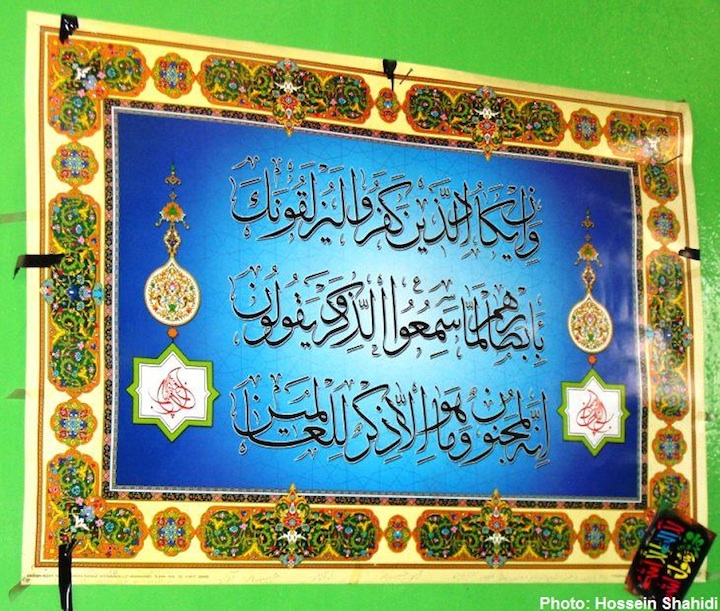 وَإِن يَكَادُ الَّذِينَ كَفَرُوا لَيُزْلِقُونَكَ
بِأَبْصَارِهِمْ لَمَّا سَمِعُوا الذِّكْرَ وَيَقُولُونَ
إِنَّهُ لَمَجْنُونٌ وَمَا هُوَ إِلَّا ذِكْرٌ لِلْعَالَمِينَ
Photo: Hossein Shahidi